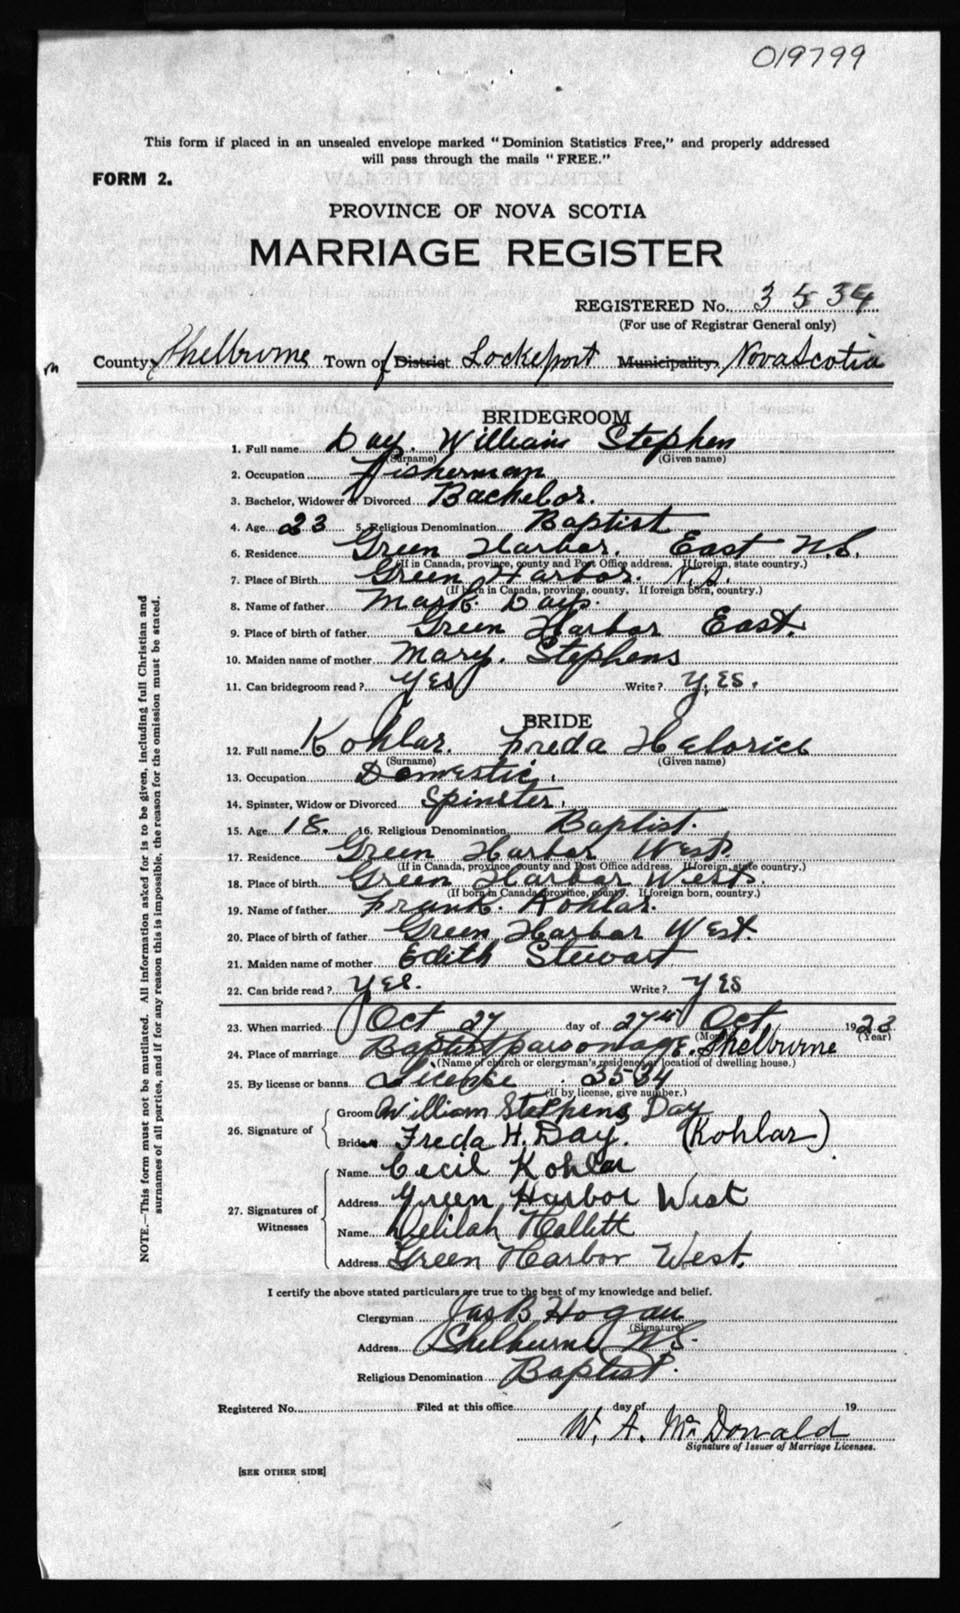 019799
This form if placed in an unsealed envelope marked "Dominion Statistics Free," and properly addressed
will pass through the mails "FREE."
FORM 2.
PROVINCE OF NOVA SCOTIA
MARRIAGE REGISTER
REGISTERED No. 3534
(For use of Registrar General only)
County, Shelburne Town of District Lockeport Municipality, Nova Scotia
BRIDEGROOM
1. Full name Day. William Stephen
(Surname) (Given name)
2. Occupation Fisherman
3. Bachelor, Widower or Divorced Bachelor.
4. Age 23 5. Religious Denomination Baptist
6. Residence Green Harbor. East N.S.
(If in Canada, province, county and Post Office address. If foreign, state country.)
7. Place of Birth Green Harbor. N.S.
(If born in Canada, province, county. If foreign born, country.)
8. Name of father Mark. Day.
9. Place of birth of father Green Harbor East.
10. Maiden name of mother Mary. Stephens
11. Can bridegroom read? Yes Write? Yes.
BRIDE
12. Full name Kohlar. Freda
(Surname) (Given name)
13. Occupation Domestic.
14. Spinster, Widow or Divorced Spinster.
15. Age 18. 16. Religious Denomination Baptist.
17. Residence Green Harbor West
(If in Canada, province, county and Post Office address. If foreign, state country.)
18. Place of birth Green Harbor West.
(If born in Canada, province, county. If foreign born, country.)
19. Name of father Frank. Kohlar.
20. Place of birth of father Green Harbor West.
21. Maiden name of mother Edith Stewart
22. Can bride read? Yes. Write? Yes
23. When married Oct 27 day of 27th Oct 1923
(Month) (Year)
24. Place of marriage Baptist parsonage. Shelburne
(Name of church or clergyman's residence or location of dwelling house.)
25. By license or banns License 3534
(If by license, give number.)
26. Signature of
Groom William Stephens Day
Bride Freda H. Day. (Kohlar)
27. Signatures of Witnesses
Name Cecil Kohlar
Address Green Harbor West
Name Delilah Hallett
Address Green Harbor West.
I certify the above stated particulars are true to the best of my knowledge and belief.
Clergyman Jas B Hogan
(Signature)
Address Shelburne N.S.
Religious Denomination Baptist.
Registered No. Filed at this office day of 19
W. A. McDonald
Signature of Issuer of Marriage Licenses.
[SEE OTHER SIDE]
NOTE.—This form must not be mutilated. All information asked for is to be given, including full Christian and
surnames of all parties, and if for any reason this is impossible, the reason for the omission must be stated.